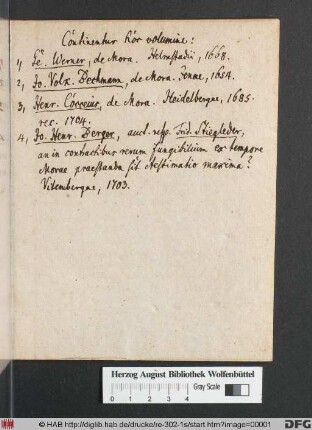 Continentur hôc volumine:
1, Sĕ. Werner, de Mora. Helmstadii, 1668.
2, Jo. Volk. Bechmann, de Mora. Jenae, 1654.
3, Henr. Cocceius, de Mora. Heidelbergae, 1685.
rec. 1704.
4, Jo. Henr. Berger, auct. resp. Frid. Stiegleder,
an in contractibus rerum fungibilium ex tempore
Morae praestanda sit Aestimatio maxima?
Vitembergae, 1703.
Herzog August Bibliothek Wolfenbüttel
0 1 2 3 4 5 Gray Scale
© HAB http://diglib.hab.de/drucke/re-302-1s/start.htm?image=00001
DFG